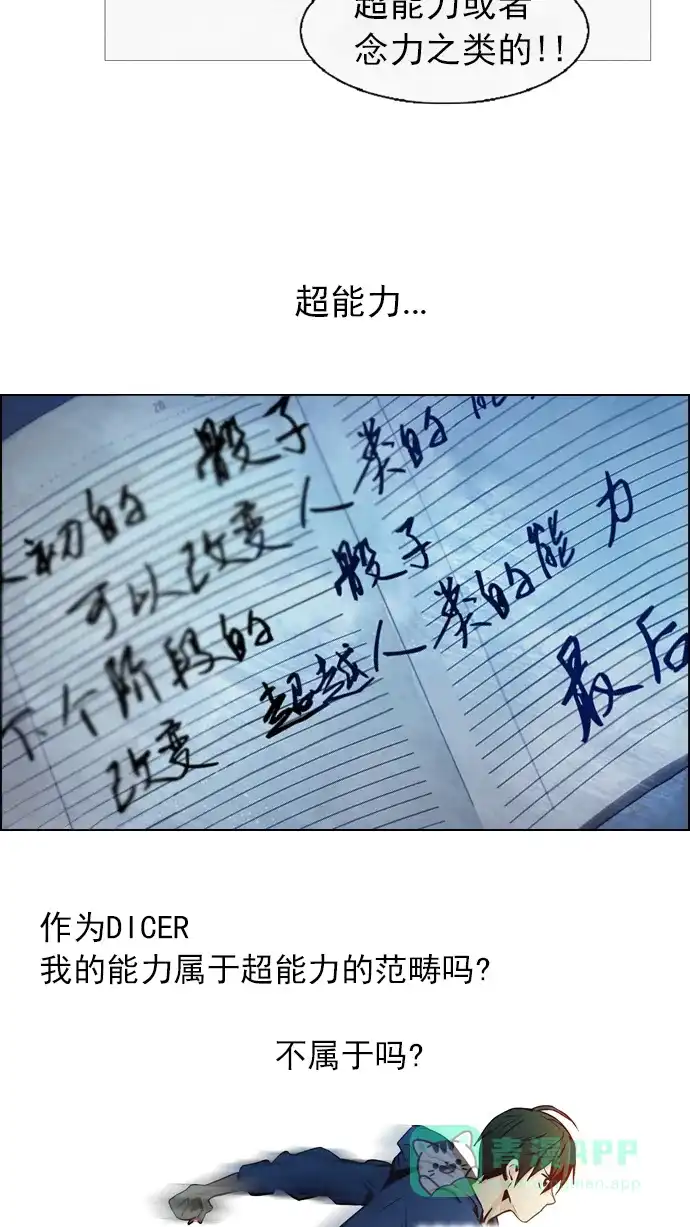 超能力或者
念力之类的!!
超能力...
20
初的 骰子
可以改变人类的能
下个阶段的 骰子
改变 超越人类的能力
最后
作为DICER
我的能力属于超能力的范畴吗?
不属于吗?
青漫APP